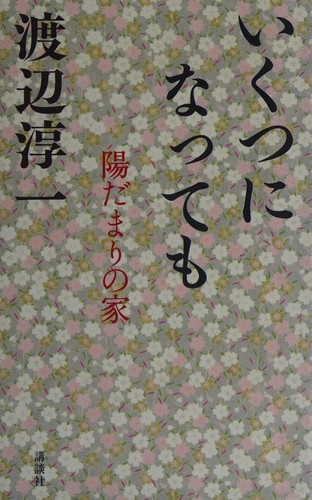 いくつに
なっても
陽だまりの家
渡辺淳一
講談社